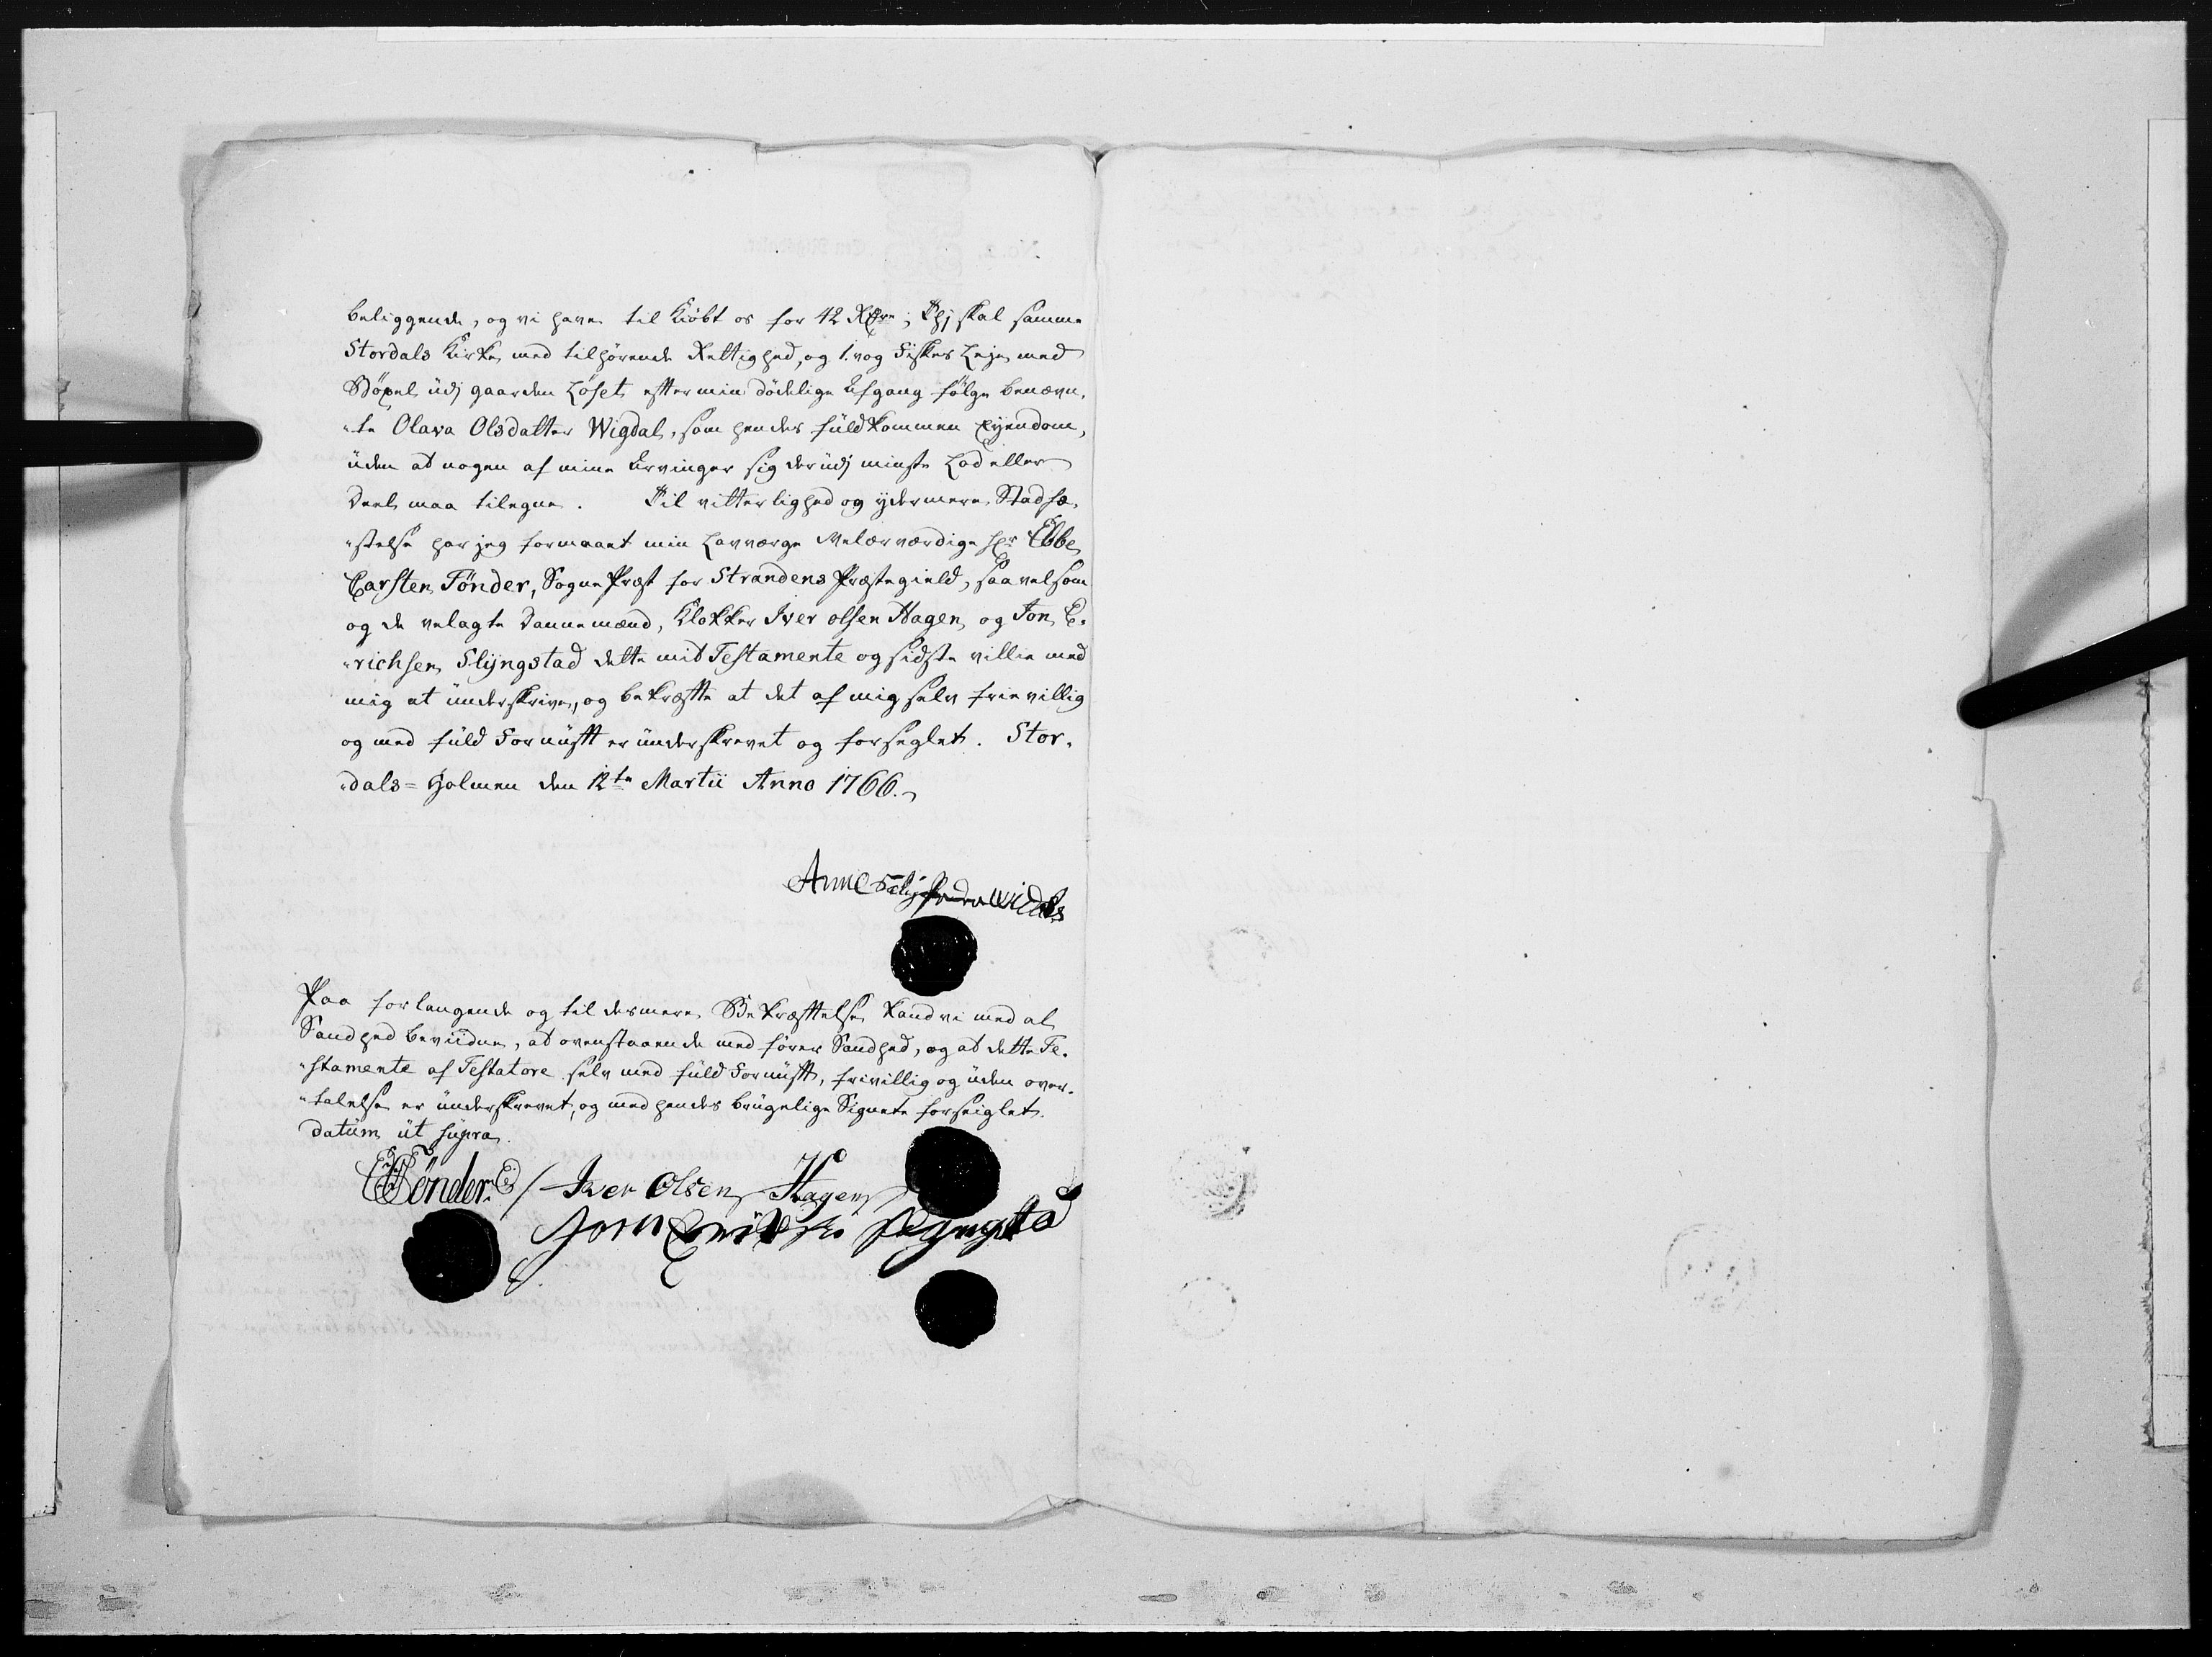 beliggende, og vi have til Kiøbt os for 42 Rdlr; Thj skal samme
Stordals Kirke, med tilhørende Rettighed, og 1. vog Fiskes Leje, med
Bøxel üdj gaarden Løset, efter min dødelige Afgang følge benævn„
„te Olava Olsdatter Wigdal, som hendes füldkommen Eyendom,
üden at nogen af mine Arvinger sig derüdj minste Lod eller
Deel maa tilegne. Til vitterlighed og ydermere Stadfæ„
„stelse har jeg formaaet min Lavværge Velærværdige Hr Ebbe
Carsten Tønder, Sogne Præst for Strandens Præstegield, saavelsom
og de velagte Dannemænd, Klokker Iver olsen Hagen, og Jon E„
„richsen Slÿngstad dette mit Testamente og sidste villie med
mig at ünderskrive, og bekræfte at det af mig selv frie villig
og med füld Fornüfft er ünderskrevet og forseglet. Stor„
„dals= Holmen den 12te Martii Anno 1766.
Anne
Paa forlangende og til desmere Bekræfftelse kand vi med al
Sandhed bevidne, at ovenstaaende med fører Sandhed, og at dette Te„
„stamente af Testatore selv med füld Fornüfft, frivillig og üden over„
„talelse er ünderskrevet, og med hendes brügelige Signete forseiglet.
datüm üt süpra.
ECTønder. / Iver Olsen Hagen
Jon